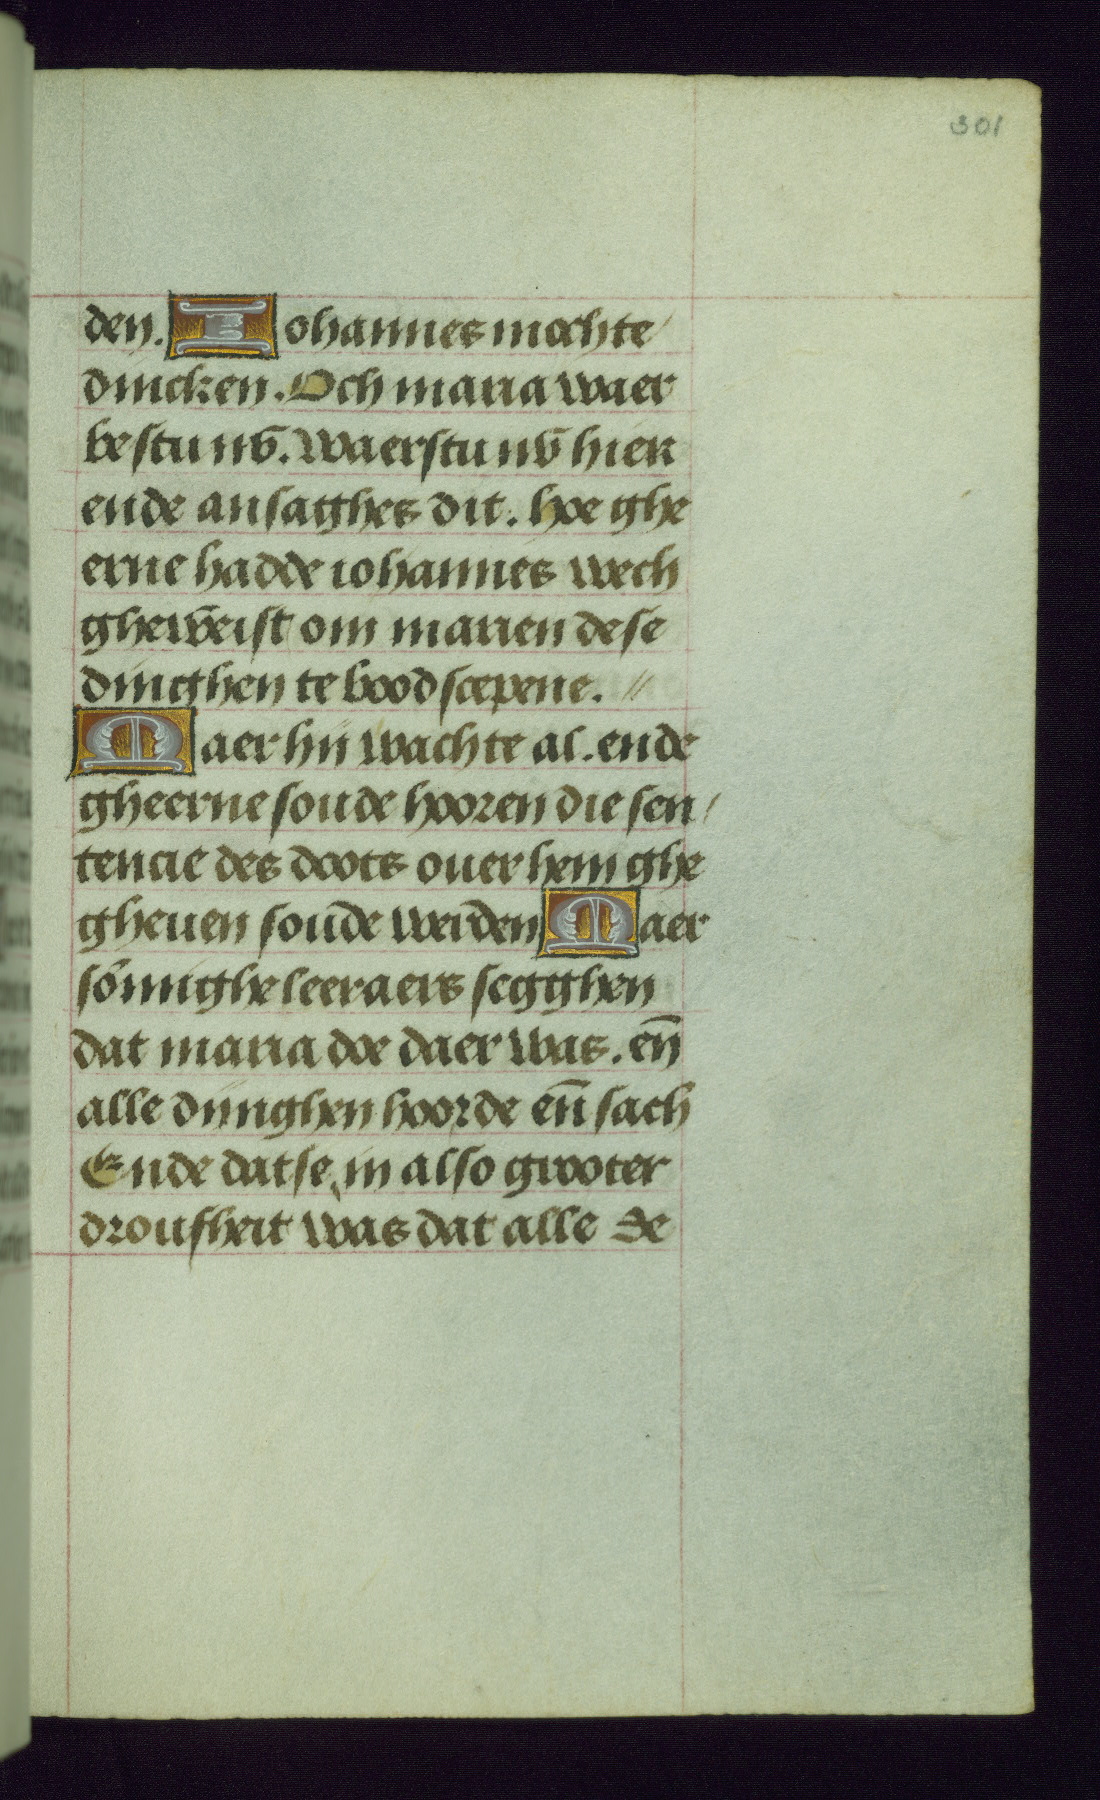 301
den. Iohannes mochte
dincken. Och maria waer
bestu nv̄. Waerstu nv̄ hier
ende ansaghes dit. hoe ghe
erne hadde iohannes wech
gheweist om marien dese
dinghen te boodscepene. //
Maer hij wachte al. ende
gheerne soude hooren die sen/
tencie des doots ouer hem ghe
gheuen soude werden Maer
sōmighe leeraers segghen
dat maria doe daer was. en̄
alle dinghen hoorde en̄ sach
Ende datse in also grooter
droufheit was dat alle de